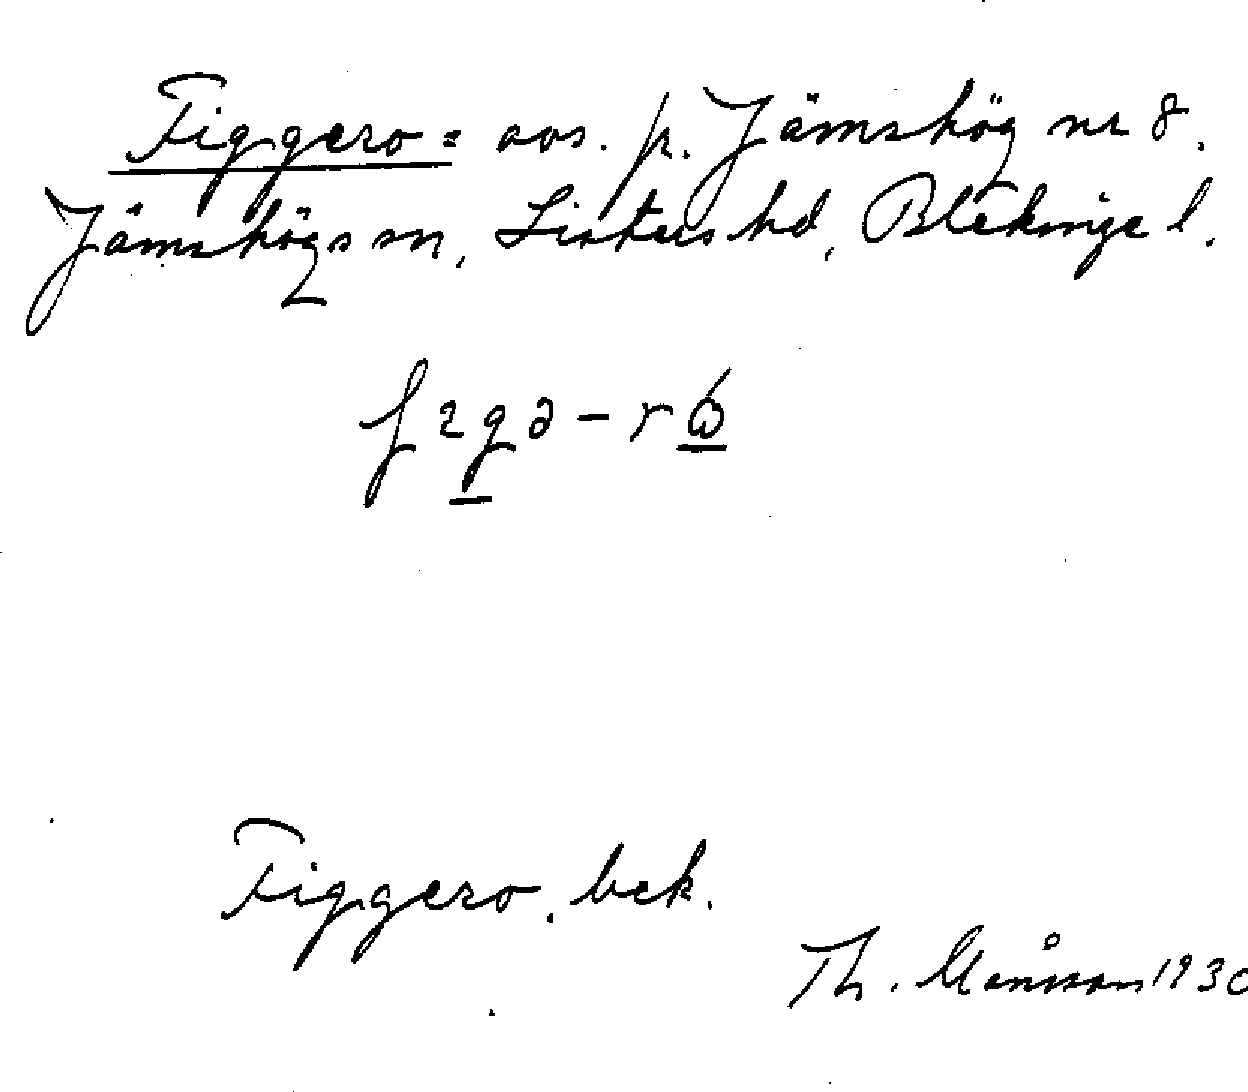 Figgero = avs. p. Jämshög nr 8.
Jämshögs sn, Listers hd, Blekinge l.
Figgero. bek.
Th. Månsson 1930